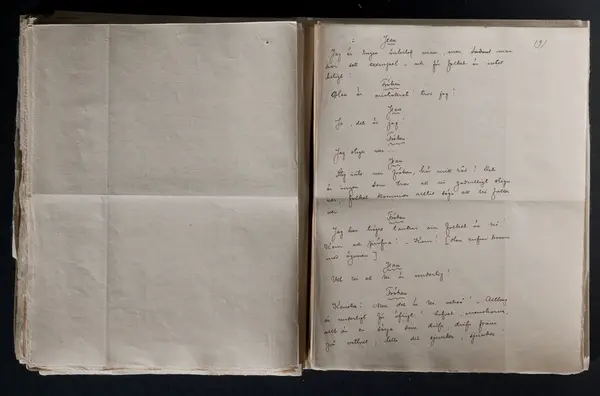 19/
Jean
Jag är ingen inbilsk man, men sådant man
har sett exempel – och för folket är intet
heligt!
Fröken
Han är aristokrat tror jag!
Jean
Ja, det är jag.
Fröken
Jag stiger ner...
Jean
Stig inte ner Fröken, hör mitt råd! Det
är ingen som tror att ni godvilligt stiger
ner; folket kommer alltid säga att ni faller
ner
Fröken
Jag har högre tankar om folket än ni!
Kom och pröfva! – Kom! [Hon ruskar honom
med ögonen]
Jean
Vet ni att ni är underlig!
Fröken
Kanske! Men det är ni också! – Allting
är underligt för öfrigt! Lifvet, menniskorna,
allt är en sörja som drifs, drifs fram
på vattnet, tills det sjunker, sjunker